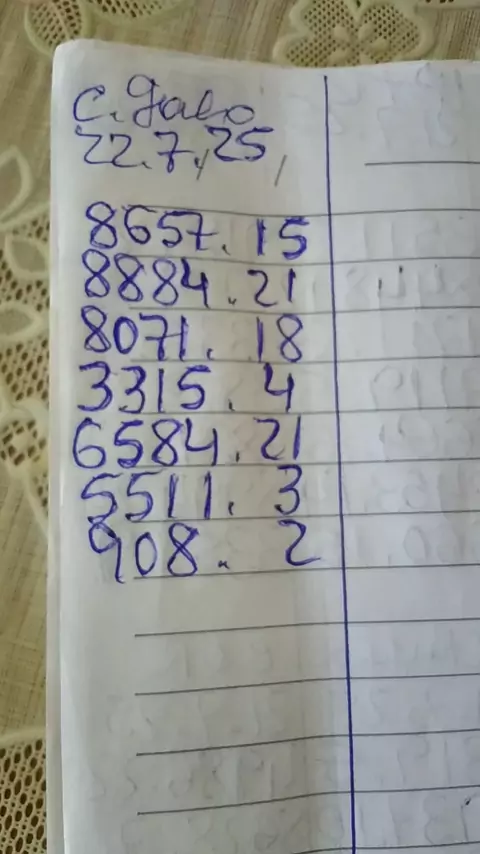 с. Даво
22.7.25,
8657. 15
8884. 21
8071. 18
3315. 4
6584. 21
5511. 3
908. 2